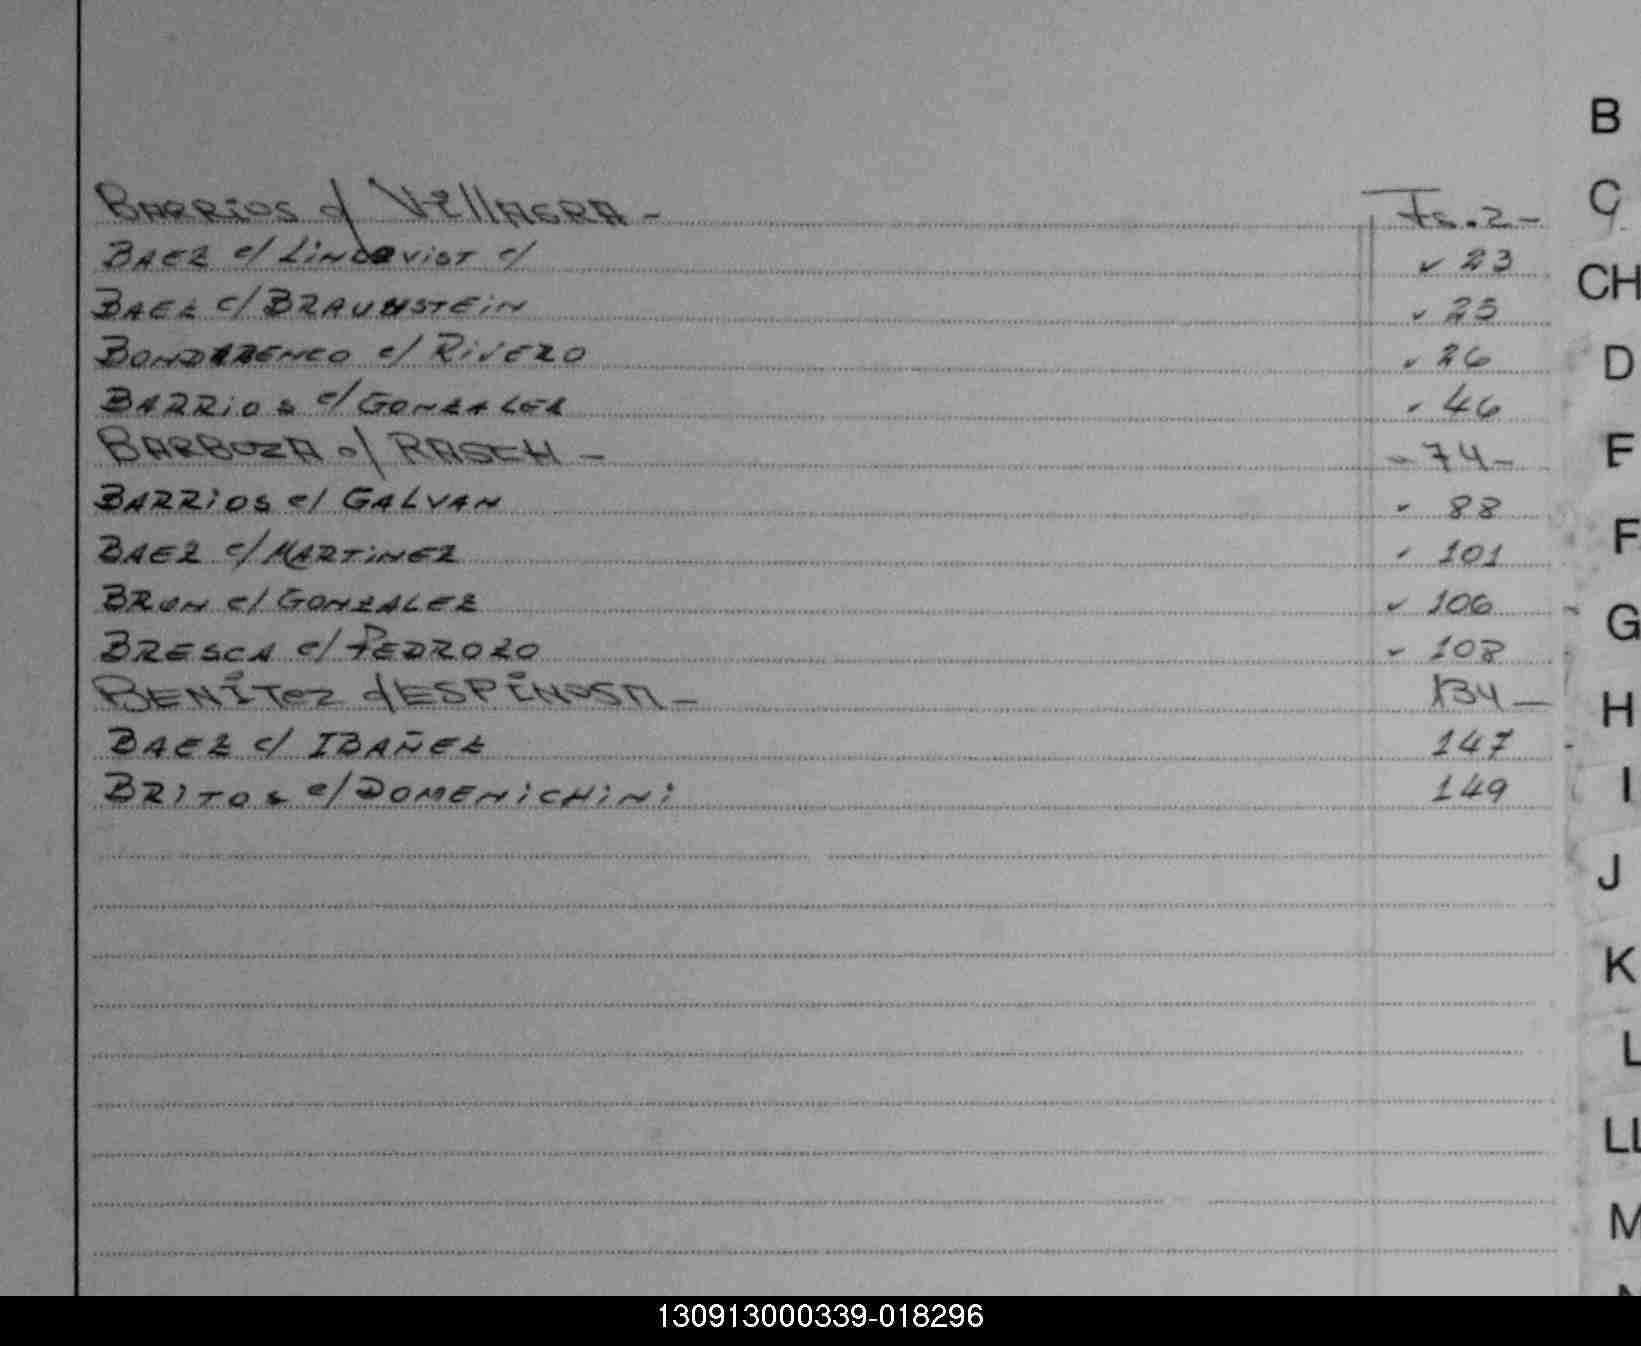 BARRIOS c/ VillAGRA - Fs. 2 -
BAEZ c/ LINDQVIST c/ ✓ 23
BAEZ c/ BRAUNSTEIN ✓ 25
BONDARENCO c/ RIVERO ✓ 26
BARRIOS c/ GONZALEZ ✓ 46
BARBOZA c/ RASCH - - 74 -
BARRIOS c/ GALVAN ✓ 88
BAEZ c/ MARTINEZ ✓ 101
BRON c/ GONZALEZ ✓ 106
BRESCA c/ PEDROZO ✓ 108
BENITEZ c/ ESPINOSA - 134 -
BAEZ c/ IBAÑEZ 147
BRITOS c/ DOMENICHINI 149
B
C
CH
D
E
F
G
H
I
J
K
L
LL
M
130913000339-018296